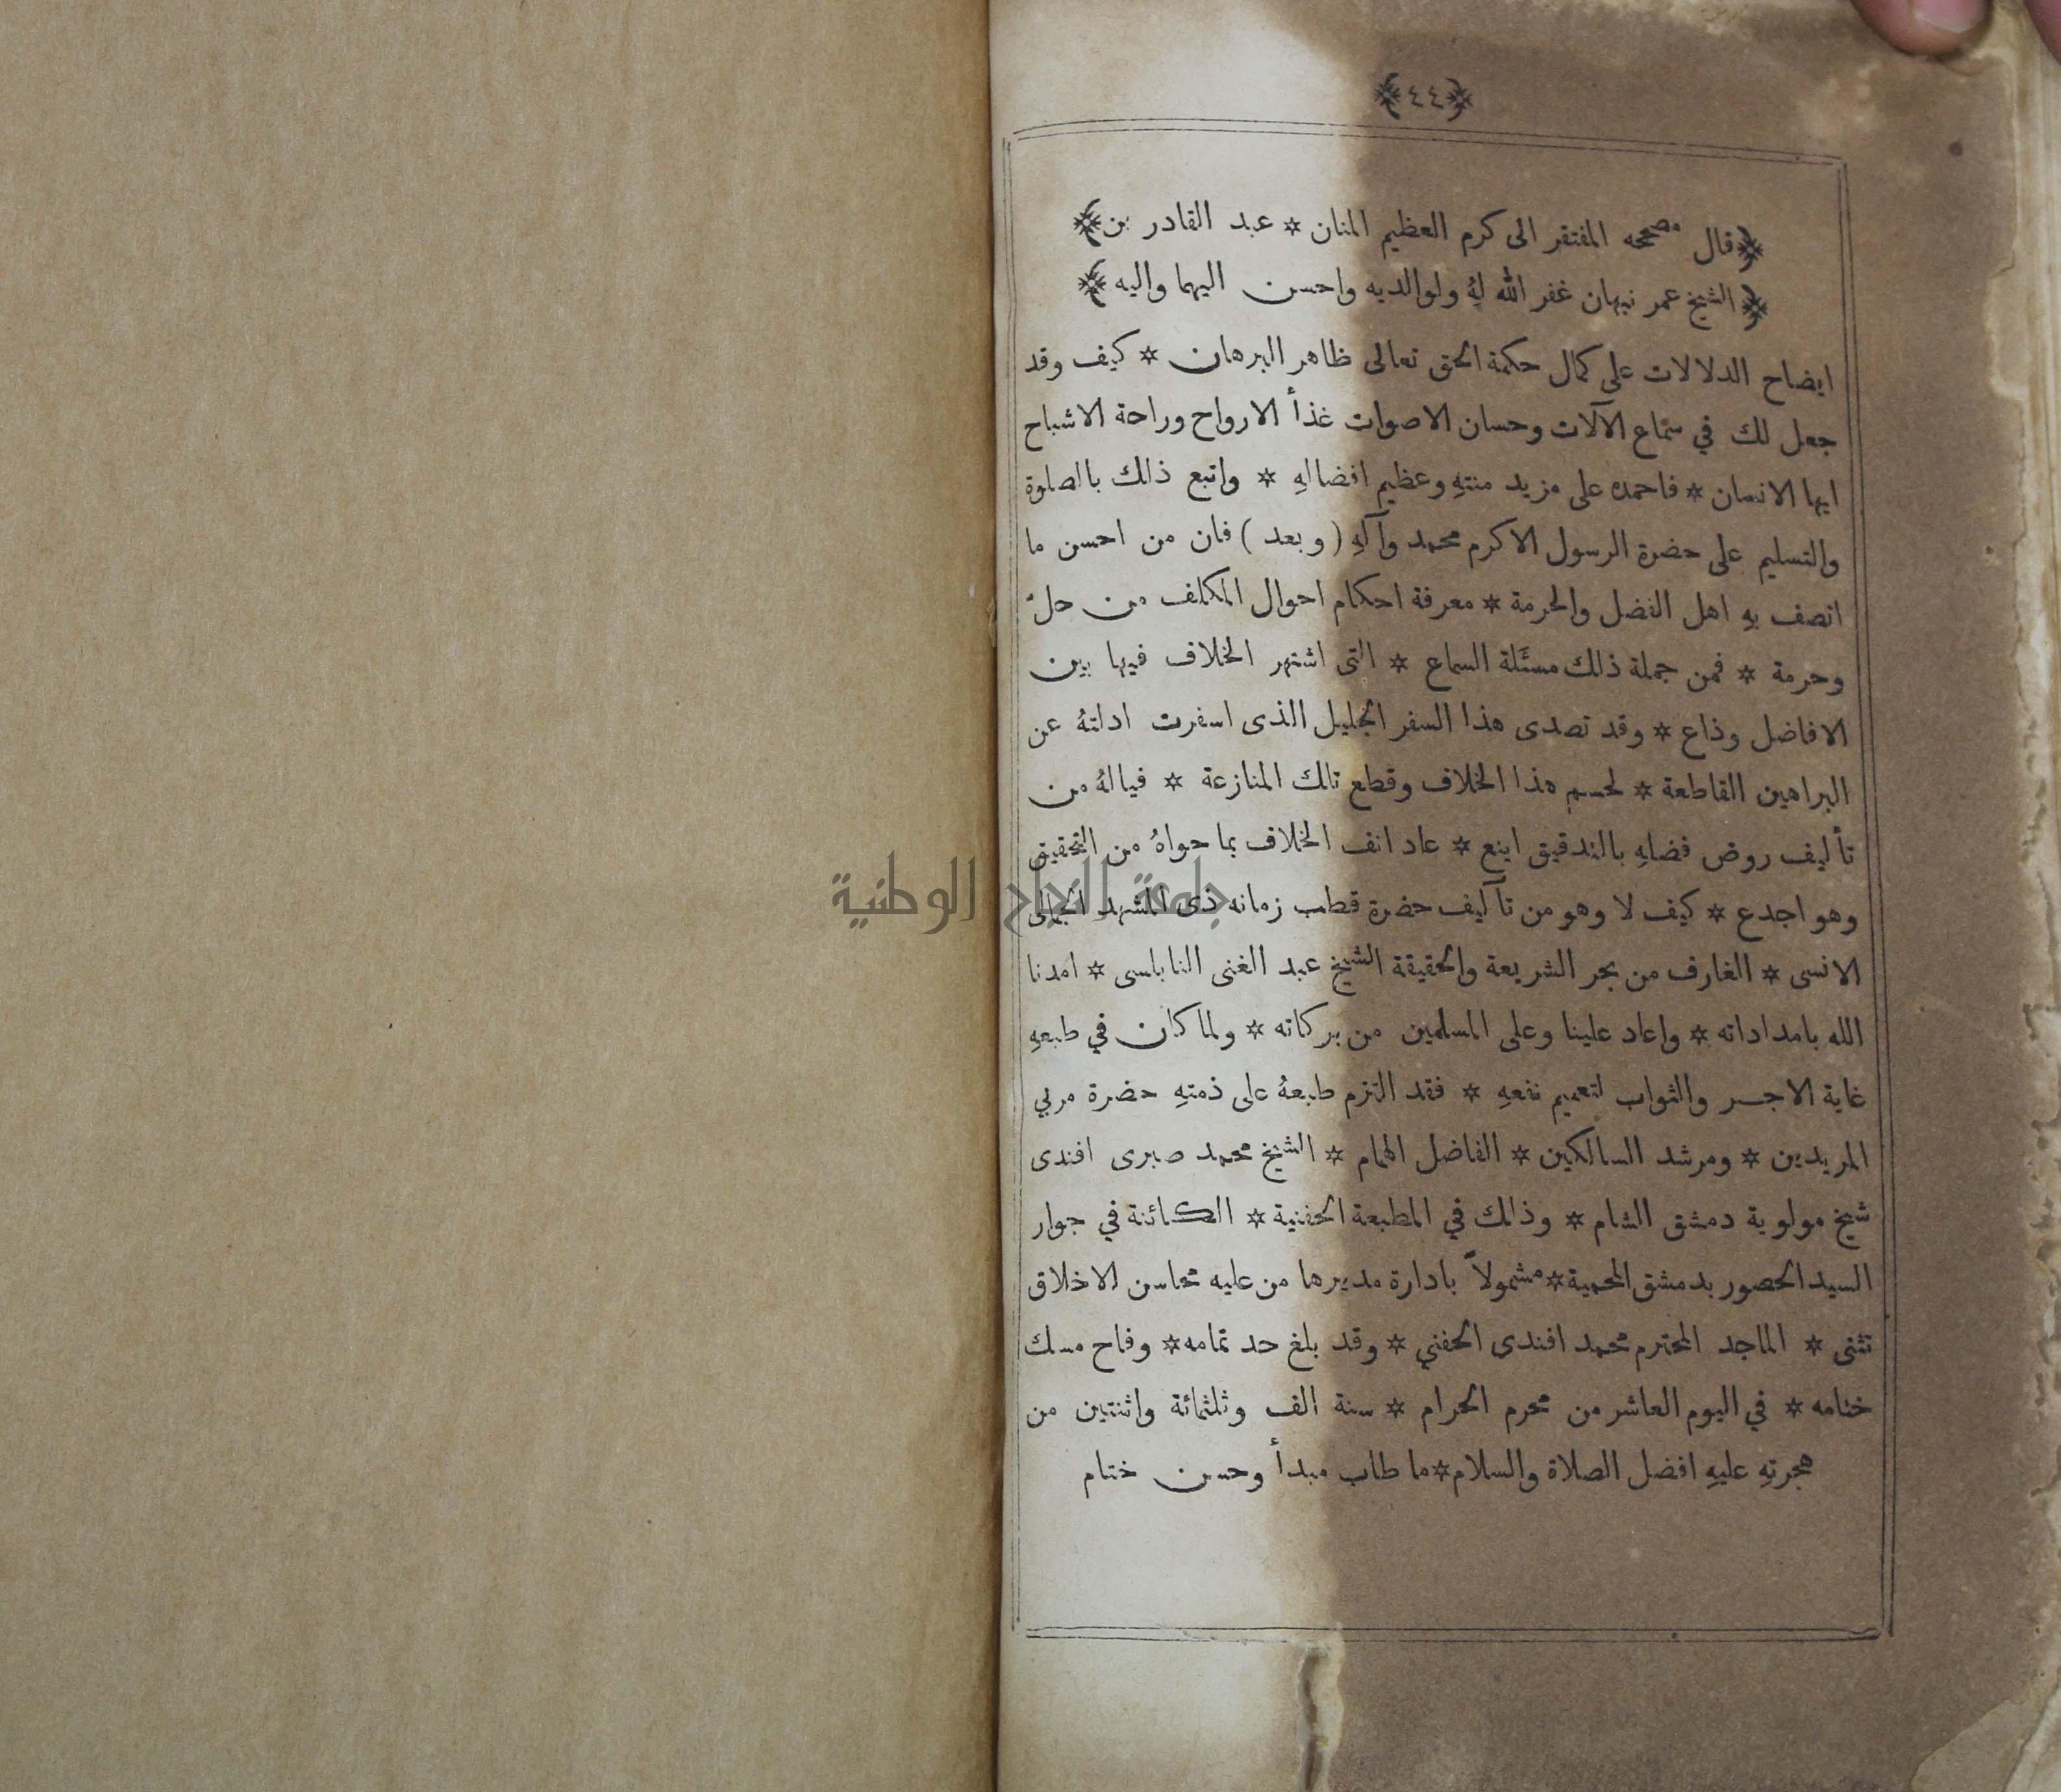 ﴿٤٤﴾
﴿قال مصححه المفتقر الى كرم العظيم المنان * عبد القادر بن﴾
﴿الشيخ عمر نبهان غفر الله لهُ ولوالديه واحسن اليهما واليه﴾
ايضاح الدلالات على كمال حكمة الحق تعالى ظاهر البرهان * كيف وقد
جعل لك في سماع الآلات وحسان الاصوات غذأ الارواح وراحة الاشباح
ايها الانسان * فاحمده على مزيد منتهِ وعظيم افضالهِ * واتبع ذلك بالصلوة
والتسليم على حضرة الرسول الاكرم محمد وآلهِ (وبعد) فان من احسن ما
اتصف بهِ اهل الفضل والحرمة * معرفة احكام احوال المكلف من حلّ
وحرمة * فمن جملة ذلك مسئلة السماع * التى اشتهر الخلاف فيها بين
الافاضل وذاع * وقد تصدى هذا السفر الجليل الذى اسفرت ادلتهُ عن
البراهين القاطعة * لحسم هذا الخلاف وقطع تلك المنازعة * فيالهُ من
تأليف روض فضلهِ بالتدقيق اينع * عاد انف الخلاف بما حواهُ من التحقيق
وهو اجدع * كيف لا وهو من تآليف حضرة قطب زمانه ذى المشهد الجمالى
الانسى * الغارف من بحر الشريعة والحقيقة الشيخ عبد الغنى النابلسى * امدنا
الله بامداداته * واعاد علينا وعلى المسلمين من بركاته * ولما كان في طبعهِ
غاية الاجر والثواب لتعميم نفعهِ * فقد التزم طبعهُ على ذمتهِ حضرة مربي
المريدين * ومرشد السالكين * الفاضل الهمام * الشيخ محمد صبرى افندى
شيخ مولوية دمشق الشام * وذلك في المطبعة الحفنية * الكائنة في جوار
السيد الحصور بدمشق المحمية * مشمولاً بادارة مديرها من عليه محاسن الاخلاق
تثنى * الماجد المحترم محمد افندى الحفني * وقد بلغ حد تمامه * وفاح مسك
ختامه * في اليوم العاشر من محرم الحرام * سنة الف وثلثمائة واثنتين من
هجرتهِ عليهِ افضل الصلاة والسلام * ما طاب مبدأ وحسن ختام
جامعة النجاح الوطنية